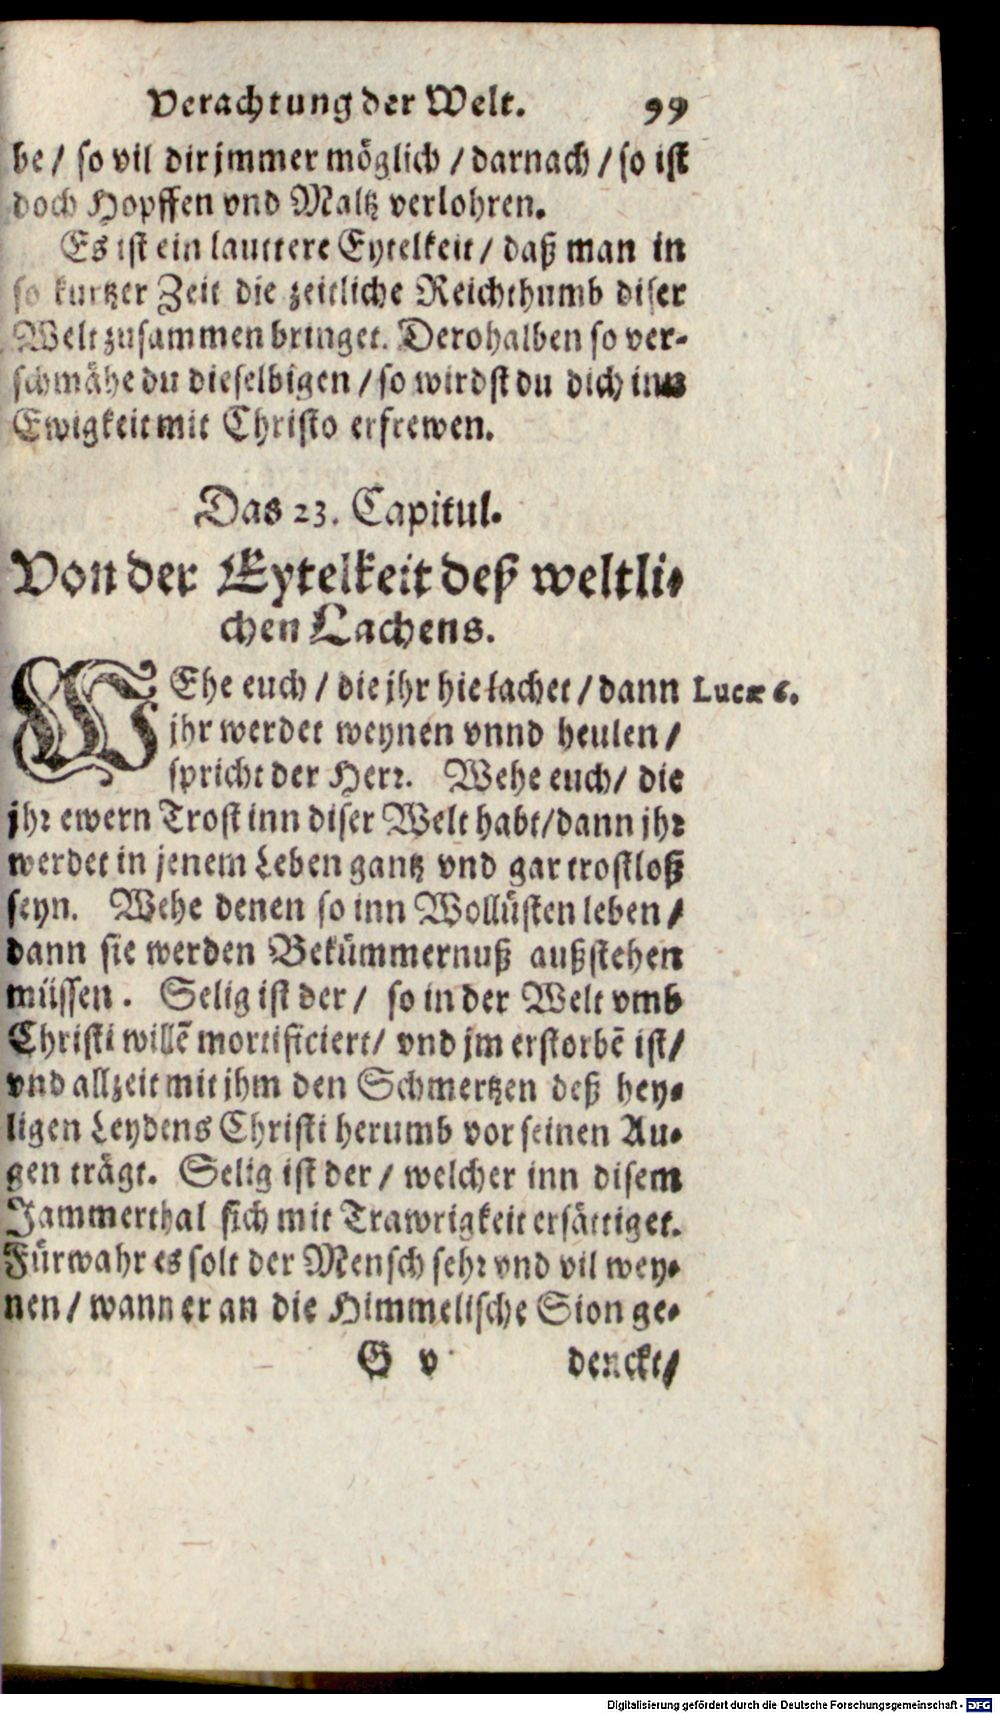 Verachtung der Welt. 99
be / so vil dir jmmer möglich / darnach / so ist
doch Hopffen vnd Maltz verlohren.
Es ist ein lauttere Eytelkeit / daß man in
so kurtzer Zeit die zeitliche Reichthumb diser
Welt zusammen bringet. Derohalben so ver-
schmähe du dieselbigen / so wirdst du dich inn
Ewigkeit mit Christo erfrewen.
Das 23. Capitul.
Von der Eytelkeit deß weltli-
chen Lachens.
WEhe euch / die jhr hie lachet / dann Lucæ 6.
jhr werdet weynen vnnd heulen /
spricht der Herr. Wehe euch / die
jhr ewern Trost inn diser Welt habt / dann jhr
werdet in jenem Leben gantz vnd gar trostloß
seyn. Wehe denen so inn Wollüsten leben /
dann sie werden Bekümmernuß außstehen
müssen. Selig ist der / so in der Welt vmb
Christi willē mortificiert / vnd jm erstorbē ist /
vnd allzeit mit jhm den Schmertzen deß hey-
ligen Leydens Christi herumb vor seinen Au-
gen trägt. Selig ist der / welcher inn disem
Jammerthal sich mit Trawrigkeit ersättiget.
Fürwahr es solt der Mensch sehr vnd vil wey-
nen / wann er an die Himmelische Sion ge-
G v denckt /
Digitalisierung gefördert durch die Deutsche Forschungsgemeinschaft - DFG